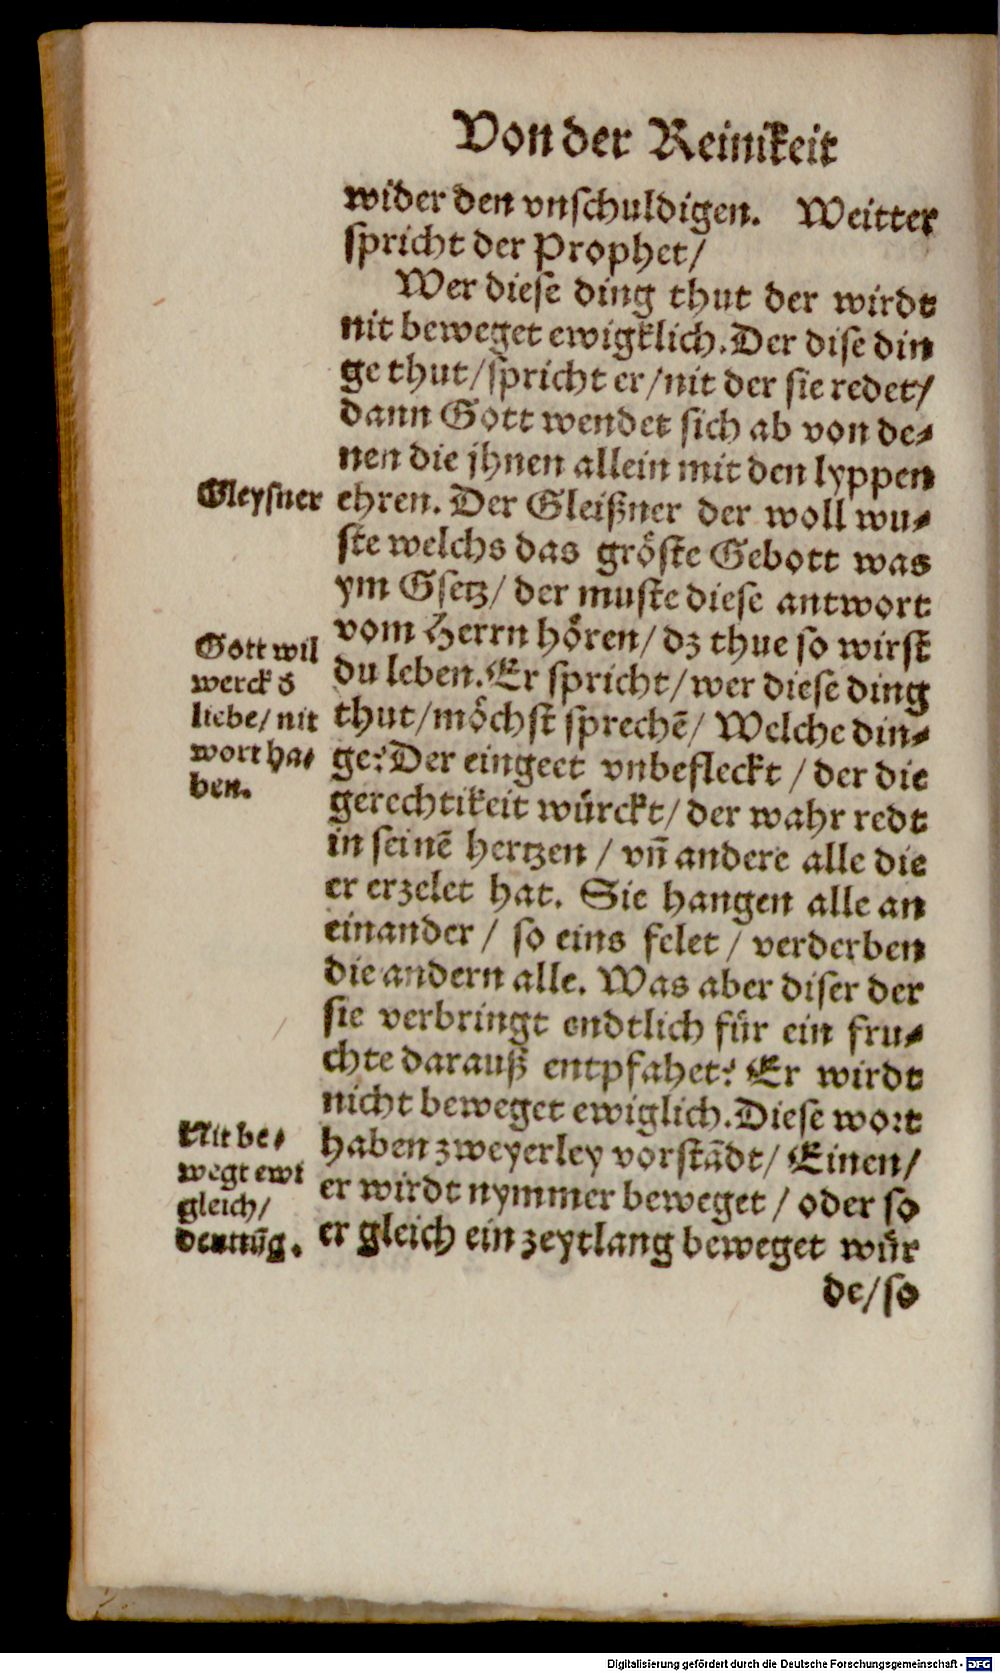 Von der Reinikeit
wider den vnschuldigen. Weitter
spricht der Prophet/
Wer diese ding thut der wirdt
nit beweget ewigklich. Der dise din
ge thut/ spricht er/ nit der sie redet/
dann Gott wendet sich ab von de⸗
nen die jhnen allein mit den lyppen
Gleysner
ehren. Der Gleißner der woll wu⸗
ste welchs das gröste Gebott was
ym Gsetz/ der muste diese antwort
vom Herrn hören/ dz thue so wirst
Gott wil
werck d
liebe/ nit
wort ha⸗
ben.
du leben. Er spricht/ wer diese ding
thut/ möchst sprechē/ Welche din⸗
ge? Der eingeet vnbefleckt / der die
gerechtikeit würckt/ der wahr redt
in seinē hertzen / vñ andere alle die
er erzelet hat. Sie hangen alle an
einander / so eins felet / verderben
die andern alle. Was aber diser der
sie verbringt endtlich für ein fru⸗
chte darauß entpfahet? Er wirdt
nicht beweget ewiglich. Diese wort
Nit be⸗
wegt ewi
gleich/
deuttūg.
haben zweyerley vorstādt/ Einen/
er wirdt nymmer beweget / oder so
er gleich ein zeytlang beweget wür
de/ so
Digitalisierung gefördert durch die Deutsche Forschungsgemeinschaft - DFG